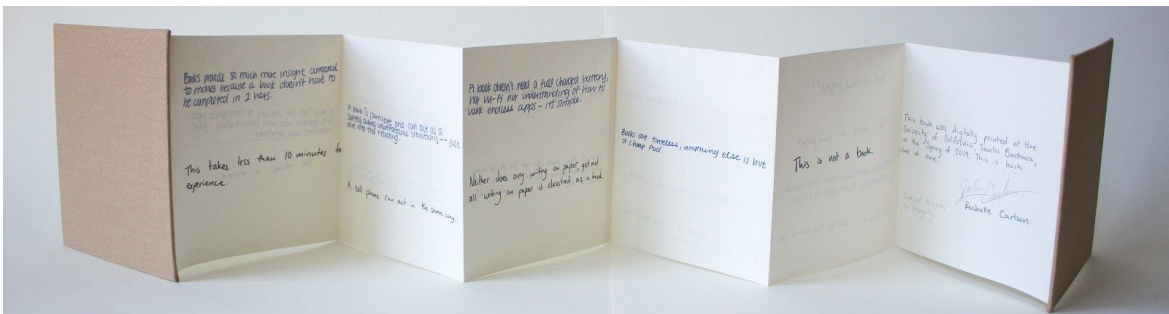 Books provide so much more insight compared
to movies because a book doesn't have to
be completed in 2 hours.
This takes less than 10 minutes to
experience.
A book is portable and can act as a
safety during uncomfortable situations -- just
dive into the reading.
A cell phone can act in the same way.
A book doesn't need a full charged battery,
nor wi-fi nor understanding of how to
work endless apps - it's simple.
Neither does any writing on paper, yet not
all writing on paper is classified as a book.
Books are timeless, anything else is just
a cheap
This is not a book.
This book was digitally printed at the
University of California, Santa Barbara,
in the spring of 2019. This is book
one of one.
Rochelle Carlson